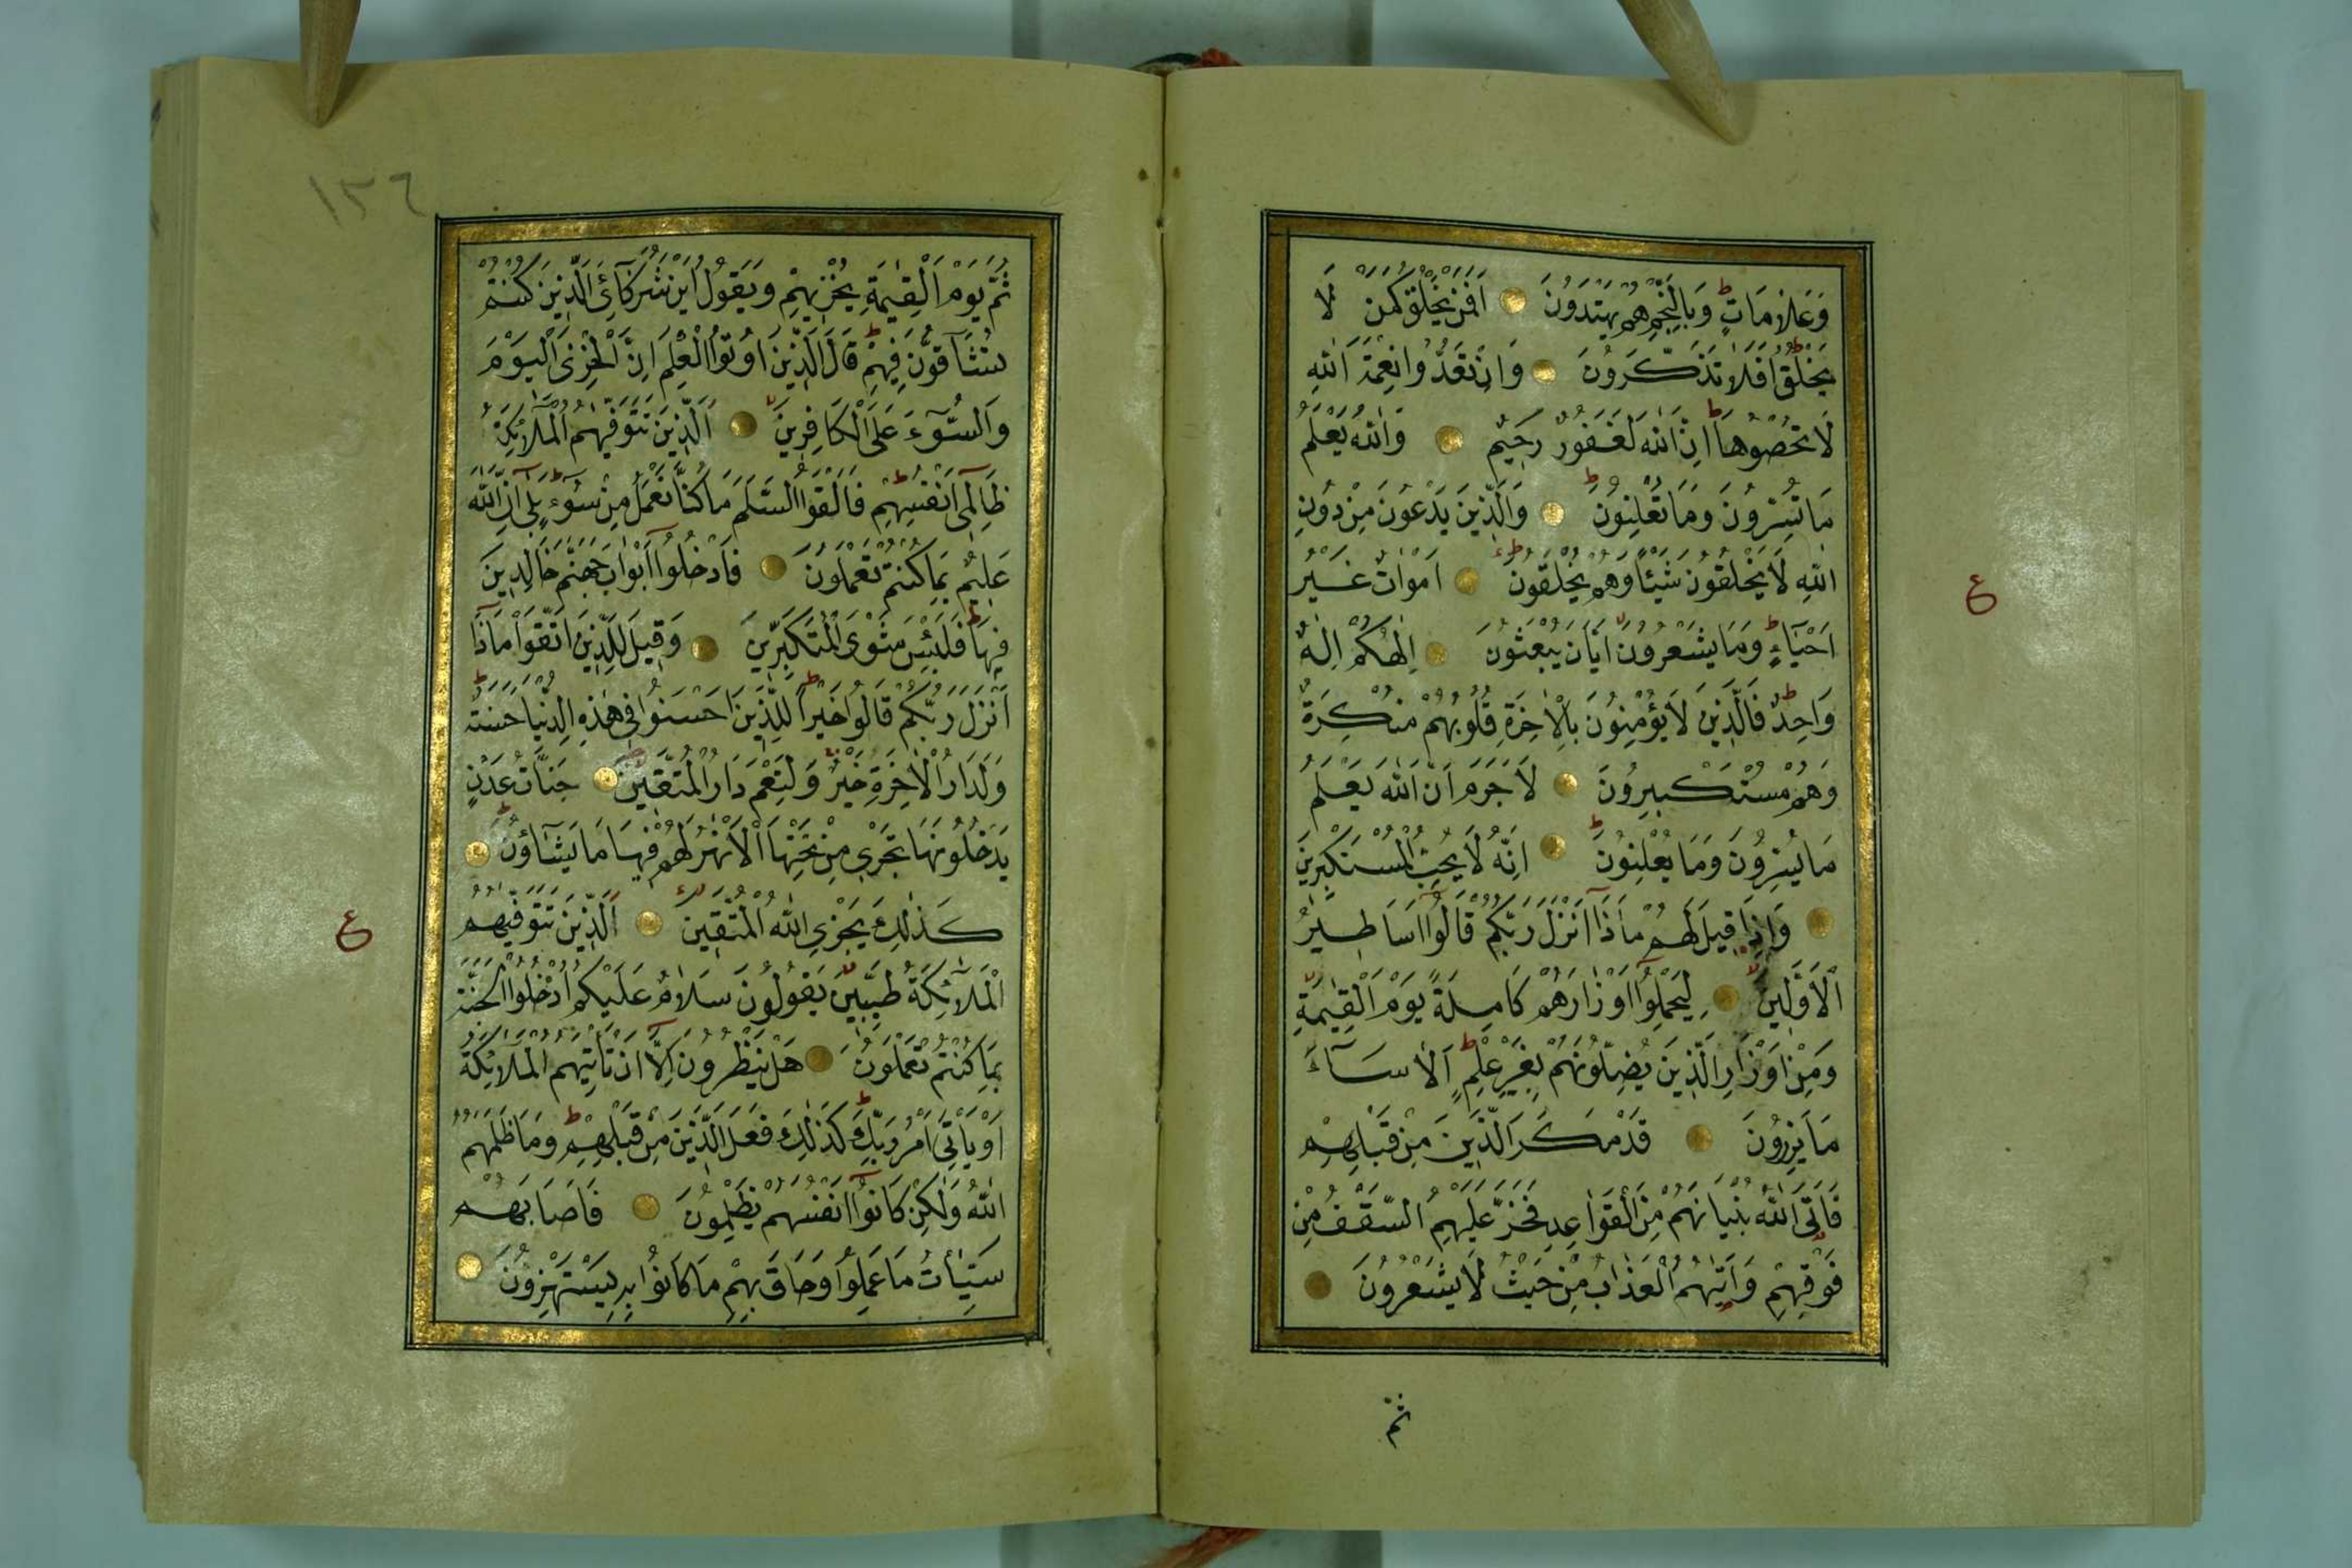 وَعَلَامَاتٍ وَبِالنَّجْمِ هُمْ يَهْتَدُونَ اَفَمَنْ يَخْلُقُ كَمَنْ لَا
يَخْلُقُ اَفَلَا تَذَكَّرُونَ وَاِنْ تَعُدُّوا نِعْمَةَ اللّٰهِ
لَا تُحْصُوهَا اِنَّ اللّٰهَ لَغَفُورٌ رَحِيمٌ وَاللّٰهُ يَعْلَمُ
مَا تُسِرُّونَ وَمَا تُعْلِنُونَ وَالَّذِينَ يَدْعُونَ مِنْ دُونِ
اللّٰهِ لَا يَخْلُقُونَ شَيْئًا وَهُمْ يُخْلَقُونَ اَمْوَاتٌ غَيْرُ
اَحْيَاءٍ وَمَا يَشْعُرُونَ اَيَّانَ يُبْعَثُونَ اِلٰهُكُمْ اِلٰهٌ
وَاحِدٌ فَالَّذِينَ لَا يُؤْمِنُونَ بِالْاٰخِرَةِ قُلُوبُهُمْ مُنْكِرَةٌ
وَهُمْ مُسْتَكْبِرُونَ لَا جَرَمَ اَنَّ اللّٰهَ يَعْلَمُ
مَا يُسِرُّونَ وَمَا يُعْلِنُونَ اِنَّهُ لَا يُحِبُّ الْمُسْتَكْبِرِينَ
وَاِذَا قِيلَ لَهُمْ مَاذَا اَنْزَلَ رَبُّكُمْ قَالُوا اَسَاطِيرُ
الْاَوَّلِينَ لِيَحْمِلُوا اَوْزَارَهُمْ كَامِلَةً يَوْمَ الْقِيٰمَةِ
وَمِنْ اَوْزَارِ الَّذِينَ يُضِلُّونَهُمْ بِغَيْرِ عِلْمٍ اَلَا سَاءَ
مَا يَزِرُونَ قَدْ مَكَرَ الَّذِينَ مِنْ قَبْلِهِمْ
فَاَتَى اللّٰهُ بُنْيَانَهُمْ مِنَ الْقَوَاعِدِ فَخَرَّ عَلَيْهِمُ السَّقْفُ مِنْ
فَوْقِهِمْ وَاَتٰيهُمُ الْعَذَابُ مِنْ حَيْثُ لَا يَشْعُرُونَ
ثم
ع
١٣٦
ثُمَّ يَوْمَ الْقِيٰمَةِ يُخْزِيهِمْ وَيَقُولُ اَيْنَ شُرَكَائِيَ الَّذِينَ كُنْتُمْ
تُشَاقُّونَ فِيهِمْ قَالَ الَّذِينَ اُوتُوا الْعِلْمَ اِنَّ الْخِزْيَ الْيَوْمَ
وَالسُّوٓءَ عَلَى الْكَافِرِينَ اَلَّذِينَ تَتَوَفّٰيهُمُ الْمَلٰٓئِكَةُ
ظَالِمِي اَنْفُسِهِمْ فَاَلْقَوُا السَّلَمَ مَا كُنَّا نَعْمَلُ مِنْ سُوٓءٍ بَلٰى اِنَّ اللّٰهَ
عَلِيمٌ بِمَا كُنْتُمْ تَعْمَلُونَ فَادْخُلُوا اَبْوَابَ جَهَنَّمَ خَالِدِينَ
فِيهَا فَلَبِئْسَ مَثْوَى الْمُتَكَبِّرِينَ وَقِيلَ لِلَّذِينَ اتَّقَوْا مَاذَا
اَنْزَلَ رَبُّكُمْ قَالُوا خَيْرًا لِلَّذِينَ اَحْسَنُوا فِي هٰذِهِ الدُّنْيَا حَسَنَةٌ
وَلَدَارُ الْاٰخِرَةِ خَيْرٌ وَلَنِعْمَ دَارُ الْمُتَّقِينَ جَنَّاتُ عَدْنٍ
يَدْخُلُونَهَا تَجْرِي مِنْ تَحْتِهَا الْاَنْهٰرُ لَهُمْ فِيهَا مَا يَشَاؤُنَ
كَذٰلِكَ يَجْزِي اللّٰهُ الْمُتَّقِينَ اَلَّذِينَ تَتَوَفّٰيهُمُ
الْمَلٰٓئِكَةُ طَيِّبِينَ يَقُولُونَ سَلَامٌ عَلَيْكُمُ ادْخُلُوا الْجَنَّةَ
بِمَا كُنْتُمْ تَعْمَلُونَ هَلْ يَنْظُرُونَ اِلَّا اَنْ تَاْتِيَهُمُ الْمَلٰٓئِكَةُ
اَوْ يَاْتِيَ اَمْرُ رَبِّكَ كَذٰلِكَ فَعَلَ الَّذِينَ مِنْ قَبْلِهِمْ وَمَا ظَلَمَهُمُ
اللّٰهُ وَلٰكِنْ كَانُوا اَنْفُسَهُمْ يَظْلِمُونَ فَاَصَابَهُمْ
سَيِّاٰتُ مَا عَمِلُوا وَحَاقَ بِهِمْ مَا كَانُوا بِهِ يَسْتَهْزِؤُنَ
ع